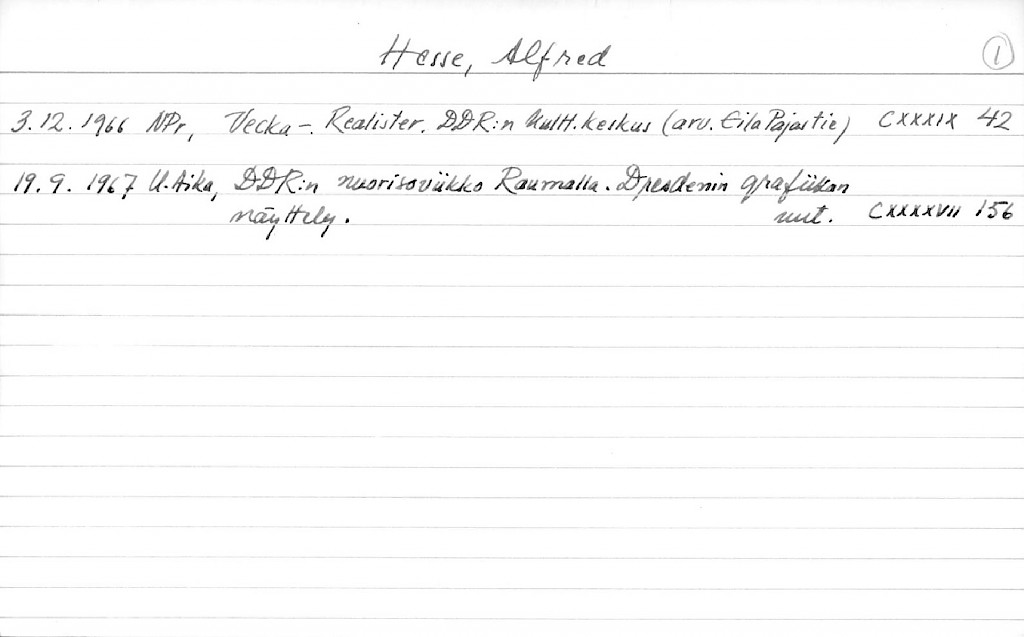 Hesse, Alfred
1
3.12.1966 NPr, Vecka –. Realister. DDR:n kultt.keskus (arv. Eila Pajastie) CXXXIX 42
19.9.1967 U.Aika, DDR:n nuorisoviikko Raumalla. Dresdenin grafiikan
näyttely. uut. CXXXXVII 156